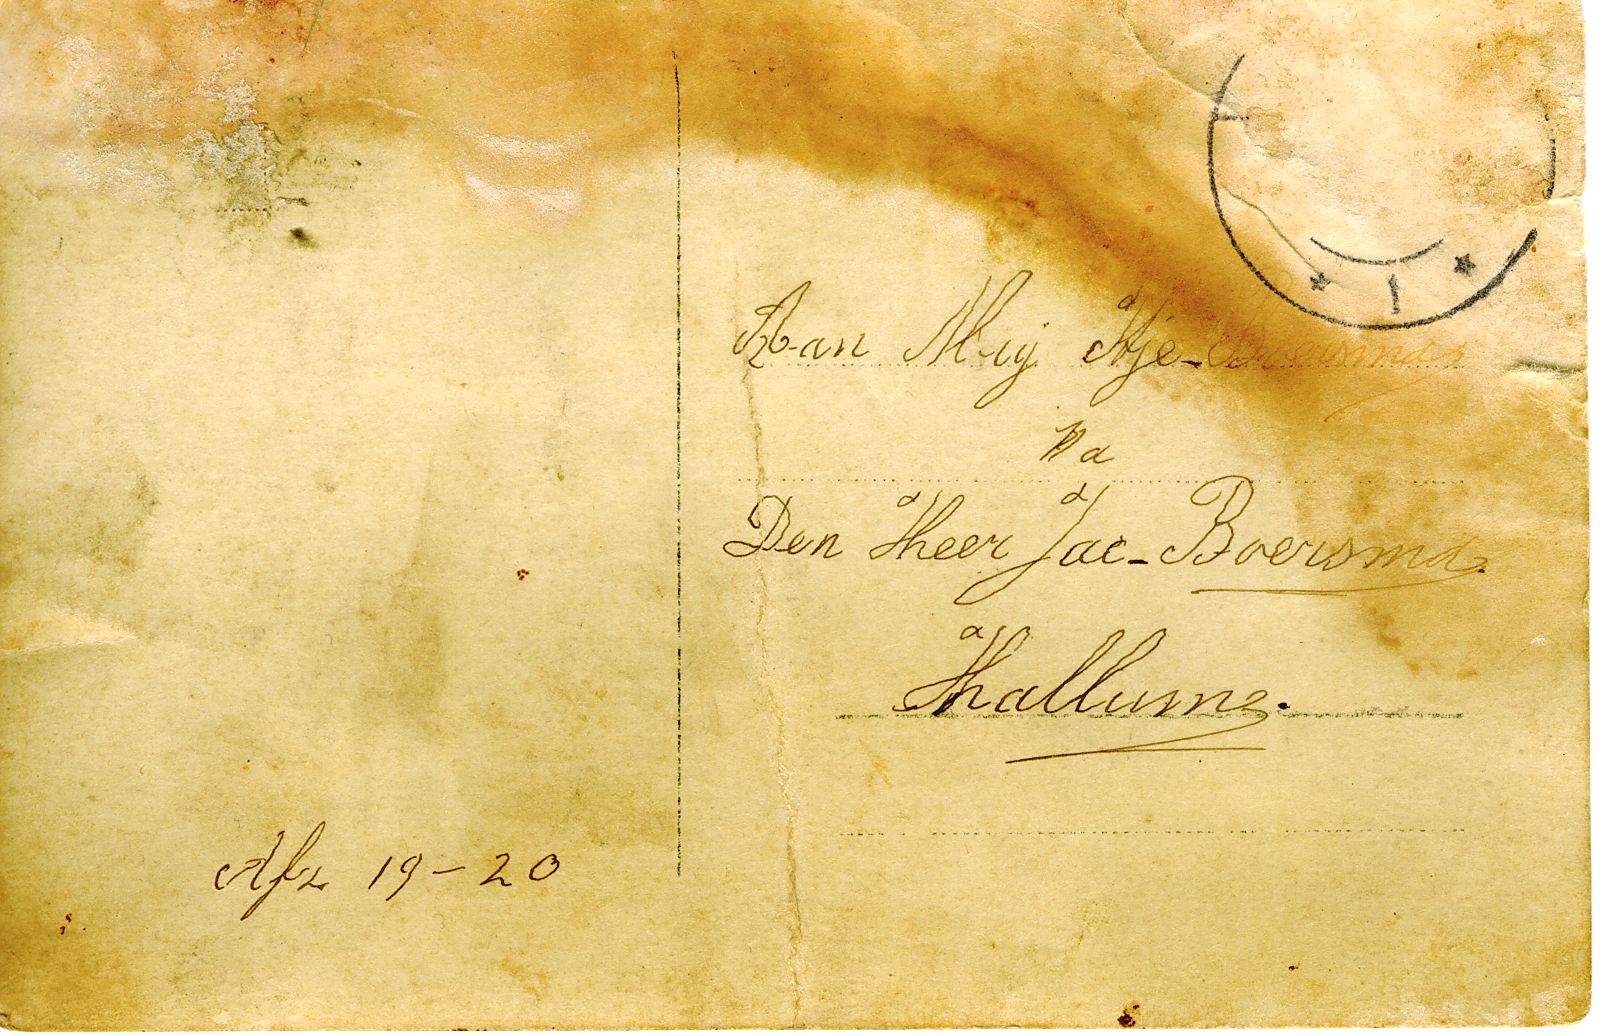 Aan Mej Hje-Boersma
p/a
Den Heer Jac- Boersma.
Hallum.
Afz 19-20
1